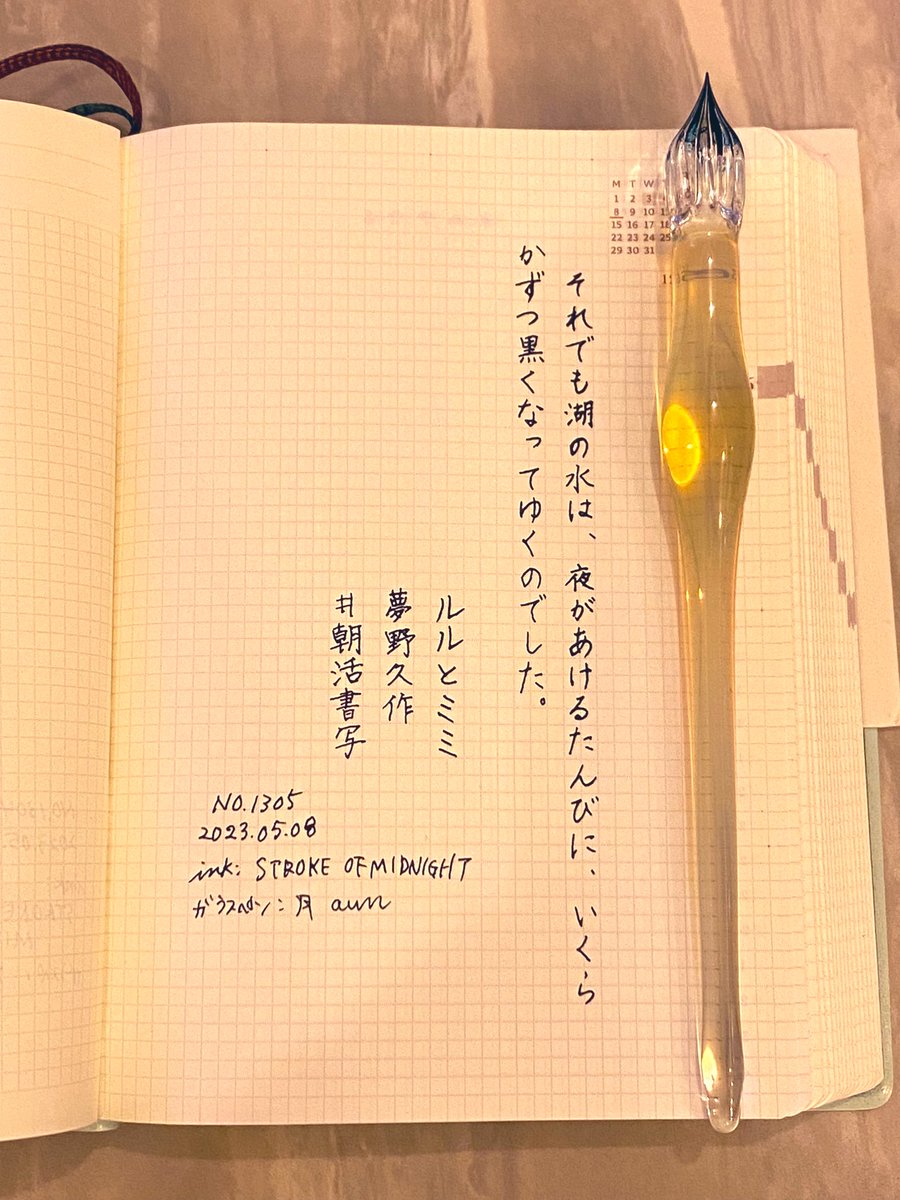 それでも湖の水は、夜があけるたんびに、いくら
かずつ黒くなってゆくのでした。
ルルとミミ
夢野久作
#朝活書写
NO.1305
2023.05.08
ink: STROKE OF MIDNIGHT
ガラスペン: 月 aun
M T W
1 2 3
8 9 10 11
15 16 17 18
22 23 24 25
29 30 31